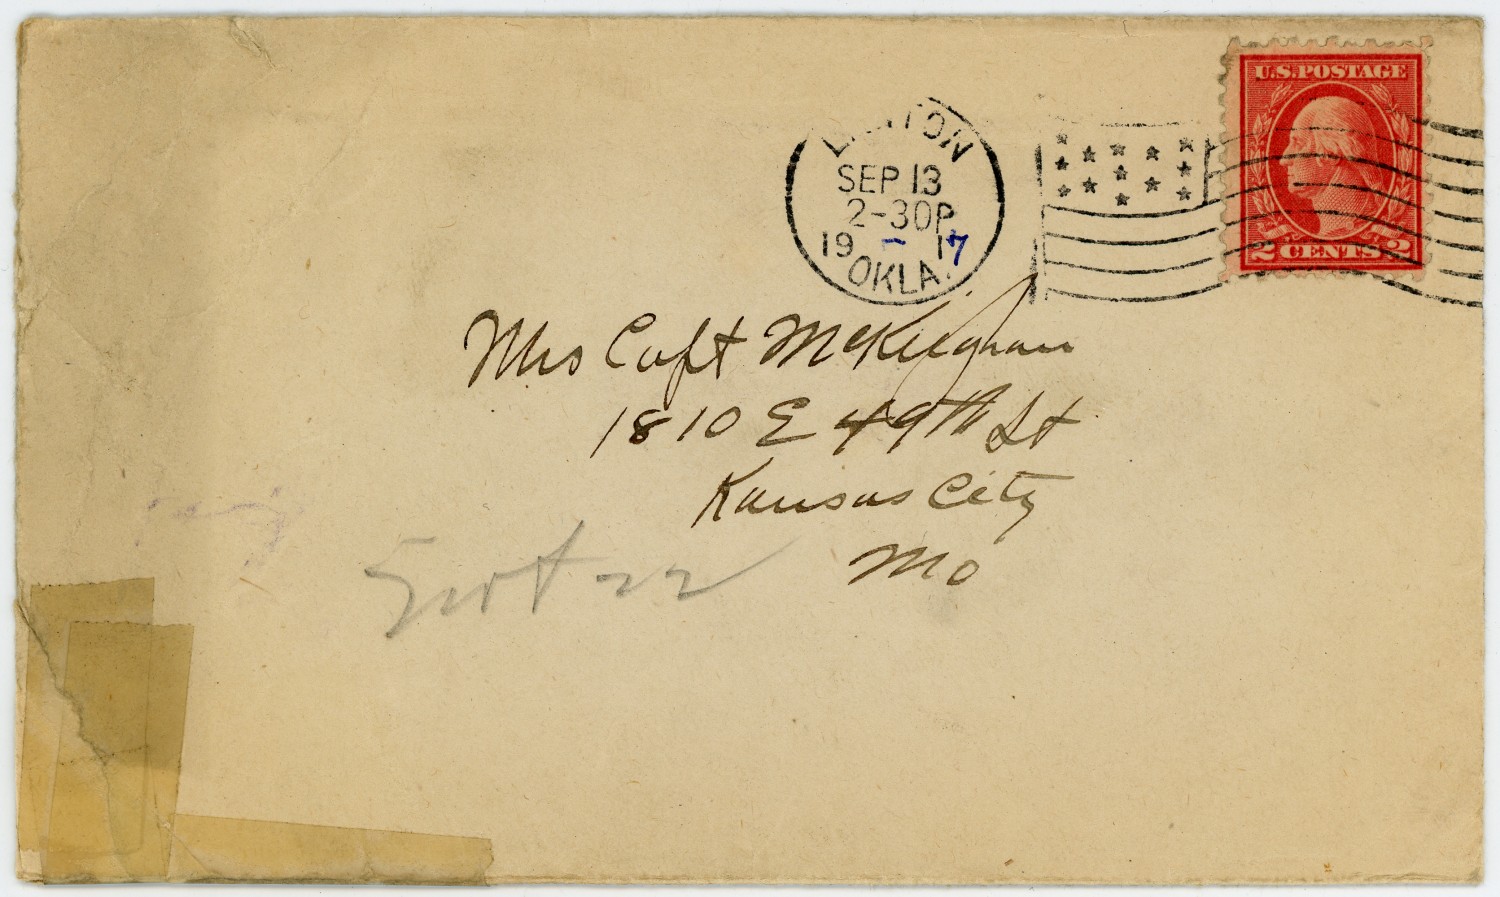 U.S. POSTAGE
2 CENTS 2
LAWTON
SEP 13
2-30P
19 - 17
OKLA.
Mrs Capt McKeighan
1810 E 49TH St
Kansas City
Mo
22